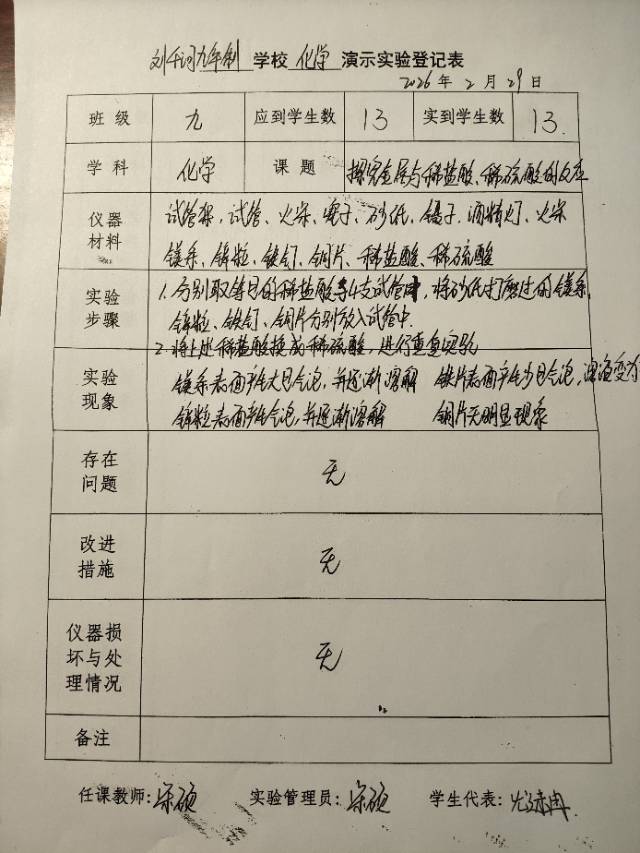 刘千河九年制 学校 化学 演示实验登记表
2026 年 2 月 29 日
班 级 九 应到学生数 13 实到学生数 13.
学 科 化学 课 题 探究金属与稀盐酸、稀硫酸的反应
仪器材料 试管架、试管、火柴、砂纸、镊子、酒精灯、火柴
镁条、锌粒、铁钉、铜片、稀盐酸、稀硫酸
实验步骤 1.分别取等量的稀盐酸于4支试管中,将砂纸打磨过的镁条、
锌粒、铁钉、铜片分别放入试管中.
2.将上述稀盐酸换成稀硫酸,进行重复实验
实验现象 镁条表面产生大量气泡,并逐渐溶解 铁片表面产生少量气泡,溶液变为
锌粒表面产生气泡,并逐渐溶解 铜片无明显现象
存在问题 无
改进措施 无
仪器损坏与处理情况 无
备注
任课教师:宋硕 实验管理员:宋硕 学生代表: